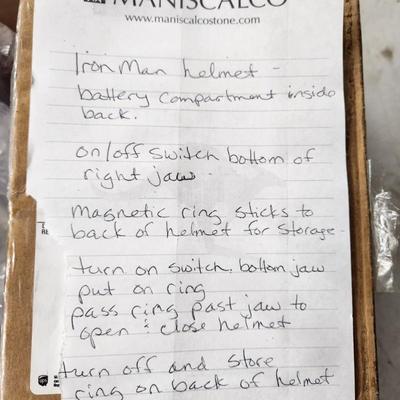 MANISCALCO
www.maniscalcostone.com
Iron Man helmet -
battery compartment inside
back.
on/off switch bottom of
right jaw.
magnetic ring sticks to
back of helmet for storage.
turn on switch. bottom jaw
put on ring
pass ring past jaw to
open & close helmet
turn off and store
ring on back of helmet